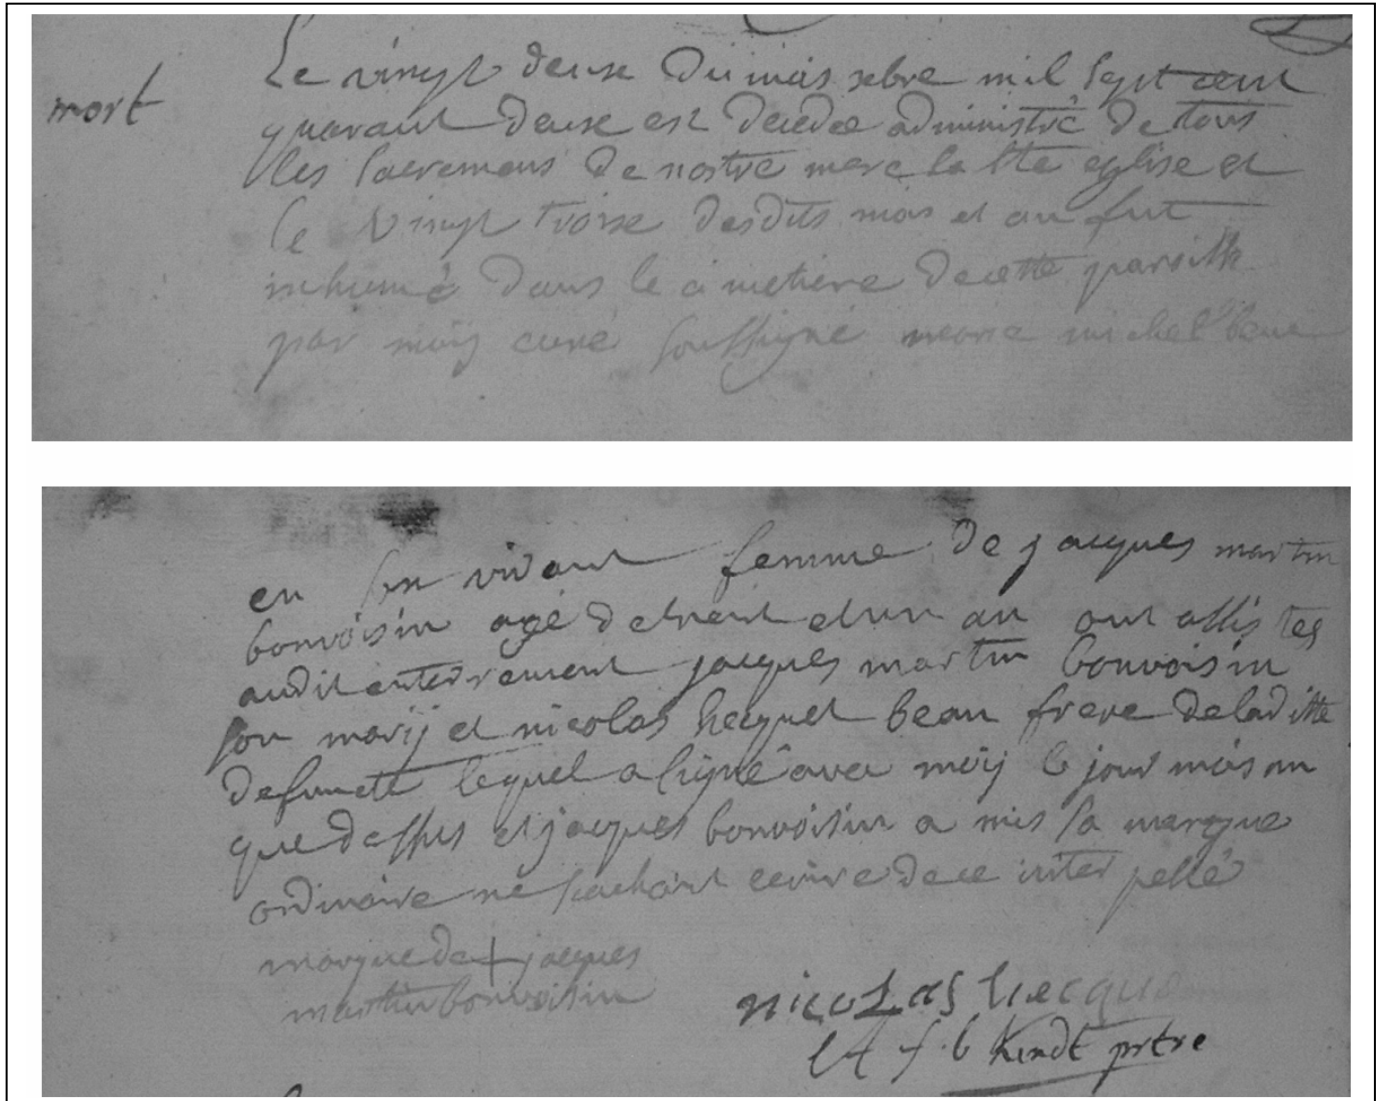 mort
Le vingt deuxe du mois xbre mil sept cent
quarant deuxe est decedee administré de tous
les sacremens de nostre mere la Ste eglise et
le vingt troise desdits mois et an fut
inhumé dans le cimetiere de cette paroisse
par moÿ curé soussigné marie michel
en son vivant femme de jacques martin
bonvoisin agé de trent et un an ont assistes
audit enterrement jacques martin bonvoisin
son marÿ et nicolas hecquet beau frere de laditte
defuncte lequel a signé avec moÿ le jour mois an
que dessus et jacques bonvoisin a mis sa marque
ordinaire ne sachant ecrire de ce inter pellé
marque de + jacques
martin bonvoisin
nicolas hecque
f b Kindt prtre